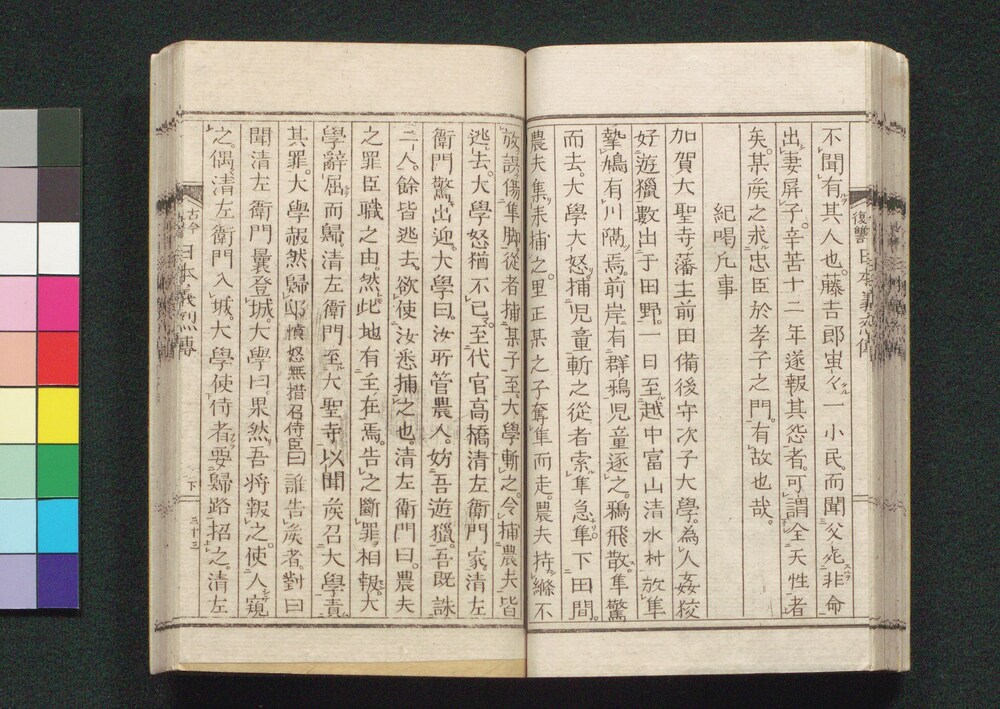 不聞有其人也。藤吉郎寅、一小民。而聞父死非命
出妻屏子。辛苦十二年遂報其怨者。可謂全天性者
矣。某侯之求忠臣於孝子之門。有故也哉。
紀唱凡事
加賀大聖寺藩主前田備後守次子大學。為人姦狡
好遊獵數出于田野。一日至越中富山清水村放隼
摯鳩有川隔焉。前岸有群鴉児童逐之。鴉飛散。隼驚
而去。大學大怒。捕児童斬之從者索隼急。隼下田間。
農夫集來捕之。里正某之子奪隼而走。農夫持縧不
放。誤傷隼脚。從者捕某子至。大學斬之。令捕農夫皆
逃去。大學怒猶不已。至代官高橋清左衛門家。清左
衛門驚出迎。大學曰。汝所管農人。妨吾遊獵。吾既誅
二人。餘皆逃去。欲使汝悉捕之也。清左衛門曰。農夫
之罪臣職之由。然此地有主在焉。告之斷罪相報。大
學辭屈而歸清左衛門至大聖寺以聞侯召大學責
其罪。大學赧然歸邸憤怒無措召侍臣曰誰告侯者。對曰
聞清左衛門曩登城大學曰。果然。吾将報之。使人窺
之。偶清左衛門入城。大學使侍者要歸路招之。清左
復讐
古今
日本義烈傳
下
三十三